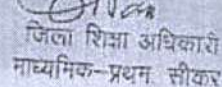 जिला शिक्षा अधिकारी
माध्यमिक-प्रथम सीकर